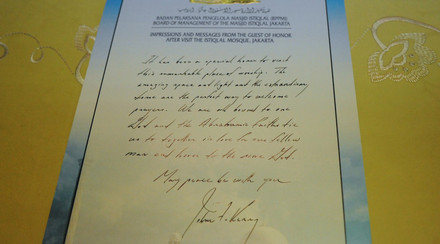 BADAN PELAKSANA PENGELOLA MASJID ISTIQLAL (BPPMI)
BOARD OF MANAGEMENT OF THE MASJID ISTIQLAL, JAKARTA
IMPRESSIONS AND MESSAGES FROM THE GUEST OF HONOR
AFTER VISIT THE ISTIQLAL MOSQUE, JAKARTA.
It has been a special honor to visit
this remarkable place of worship. The
amazing space and light and the extraordinary
dome are the perfect way to welcome
prayers. We are all bound to one
God and the Abrahamic faiths tie
us together in love for our fellow
man and honor to the same God.
May peace be with you
John F. Kerry